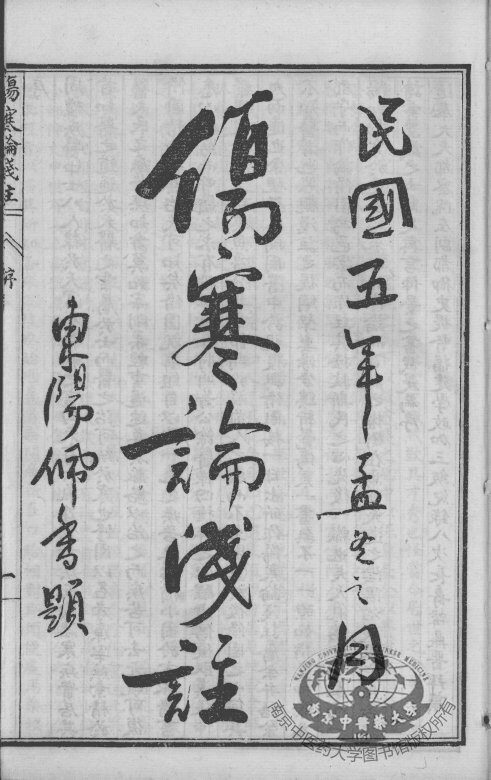 民國五年孟冬之月
傷寒論淺註
東陽佩香題
傷寒論淺註
序
NANJING UNIVERSITY OF CHINESE MEDICINE
南京中醫藥大學
南京中医药大学图书馆版权所有